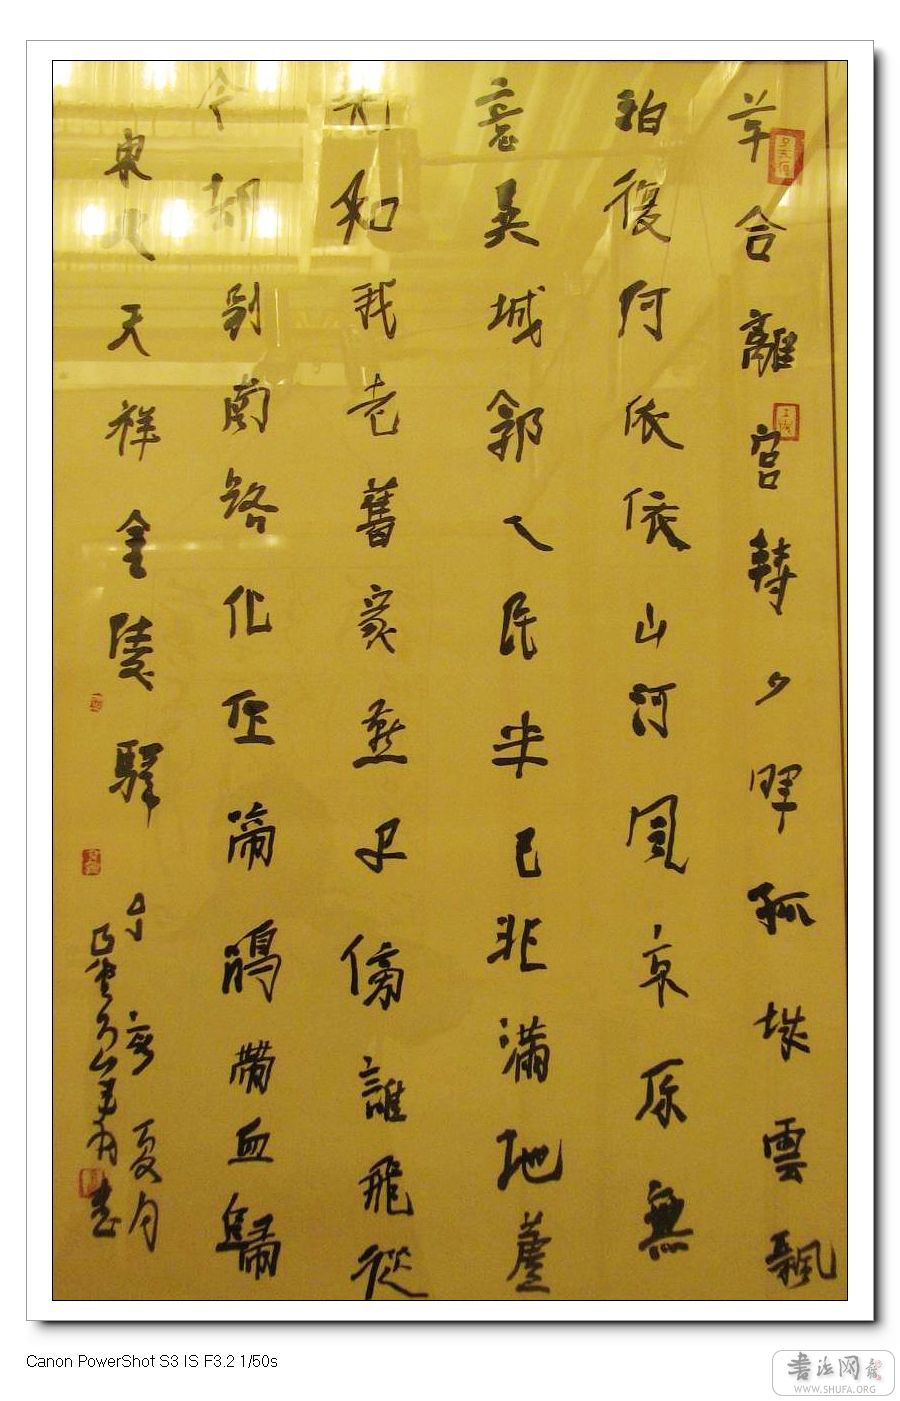 草合離宮轉夕暉孤城雲飄
泊復何依依山河風京原無
意吳城郭人民半已非滿地蘆
花和我老舊家燕子傍誰飛從
今却别南路化作啼鵑帶血歸
天祥金陵驛 丁亥夏月
書
Canon PowerShot S3 IS F3.2 1/50s
书法网
WWW.SHUFA.ORG